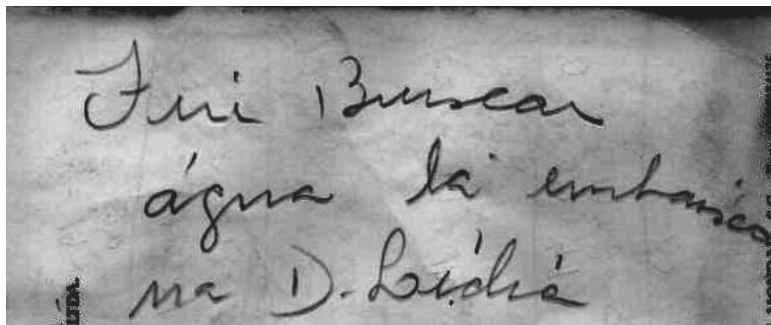 Fui Buscar
água lá embaixo
na D. Lídia